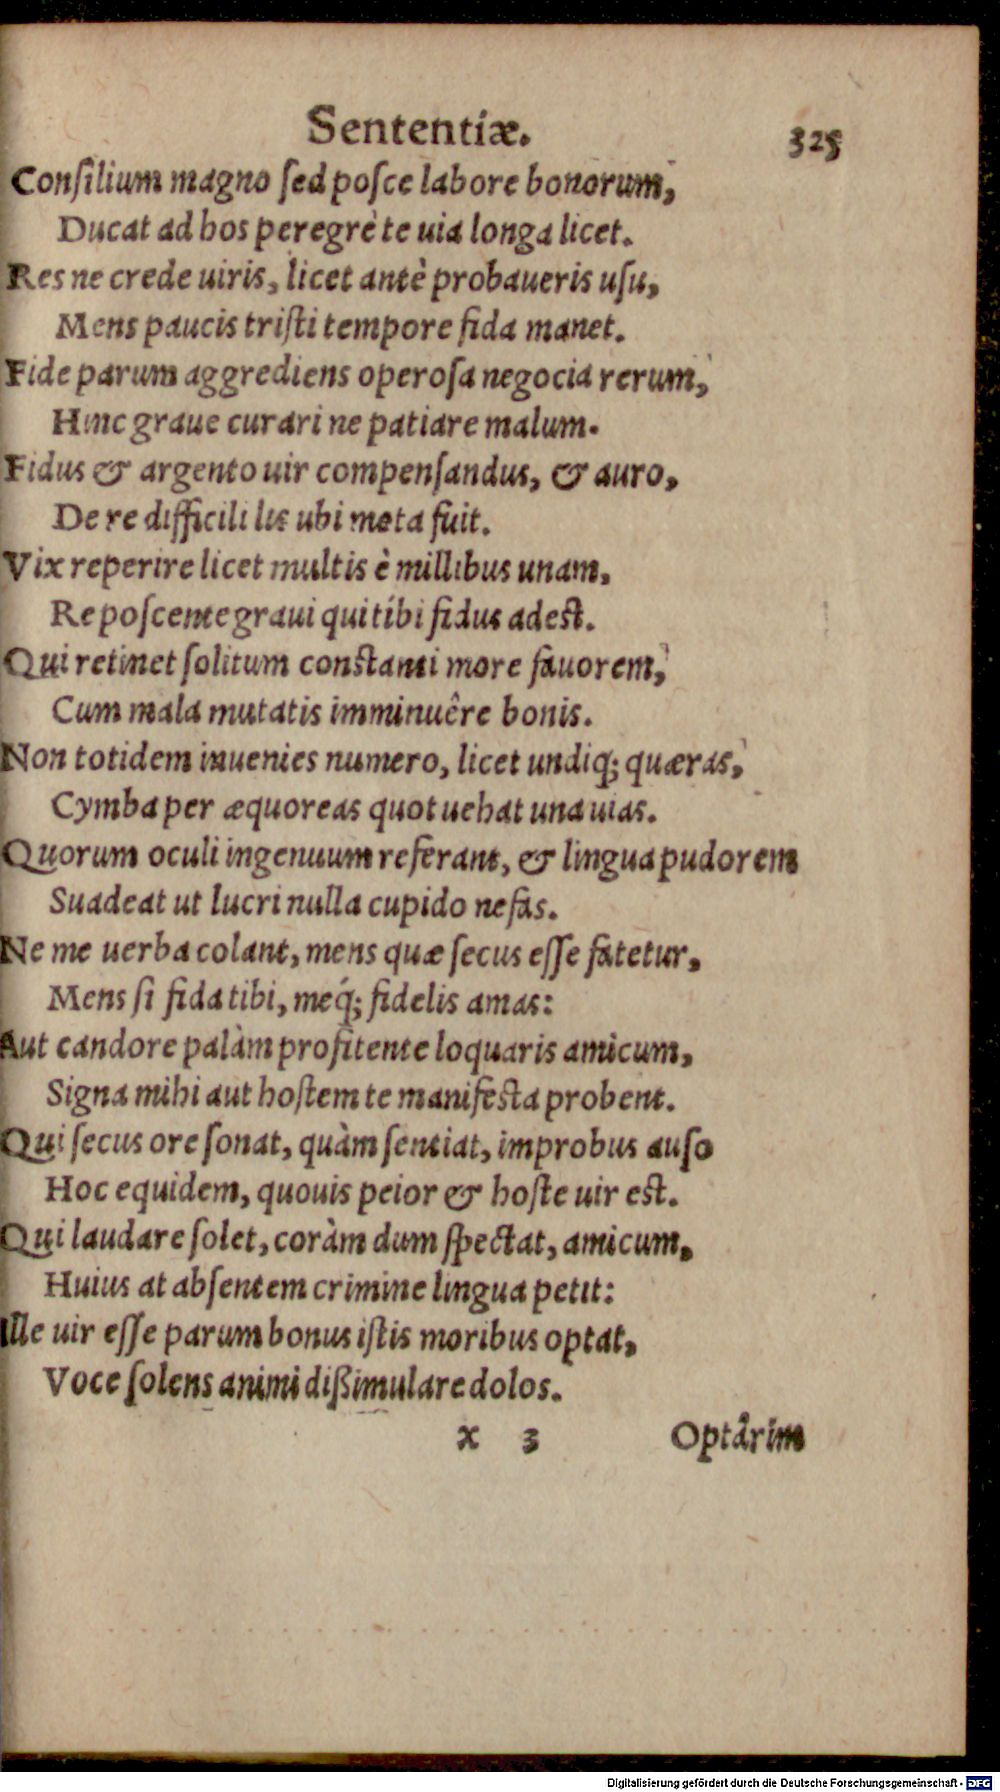 Sententiæ. 325
Consilium magno sed posce labore bonorum,
Ducat ad hos peregrè te uia longa licet.
Res ne crede uiris, licet antè probaueris usu,
Mens paucis tristi tempore fida manet.
Fide parum aggrediens operosa negocia rerum,
Hinc graue curari ne patiare malum.
Fidus & argento uir compensandus, & auro,
De re difficili lis ubi mota fuit.
Vix reperire licet multis è millibus unam,
Re poscente graui qui tibi fidus adest.
Qui retinet solitum constanti more fauorem,
Cum mala mutatis imminuêre bonis.
Non totidem inuenies numero, licet undiq; quæras,
Cymba per æquoreas quot uehat una uias.
Quorum oculi ingenuum referant, & lingua pudorem
Suadeat ut lucri nulla cupido nefas.
Ne me uerba colant, mens quæ secus esse fatetur,
Mens si fida tibi, meq́; fidelis amas:
Aut candore palàm profitente loquaris amicum,
Signa mihi aut hostem te manifesta probent.
Qui secus ore sonat, quàm sentiat, improbus auso
Hoc equidem, quouis peior & hoste uir est.
Qui laudare solet, coràm dum spectat, amicum,
Huius at absentem crimine lingua petit:
Ille uir esse parum bonus istis moribus optat,
Voce solens animi dißimulare dolos.
x 3 Optârim
Digitalisierung gefördert durch die Deutsche Forschungsgemeinschaft - DFG